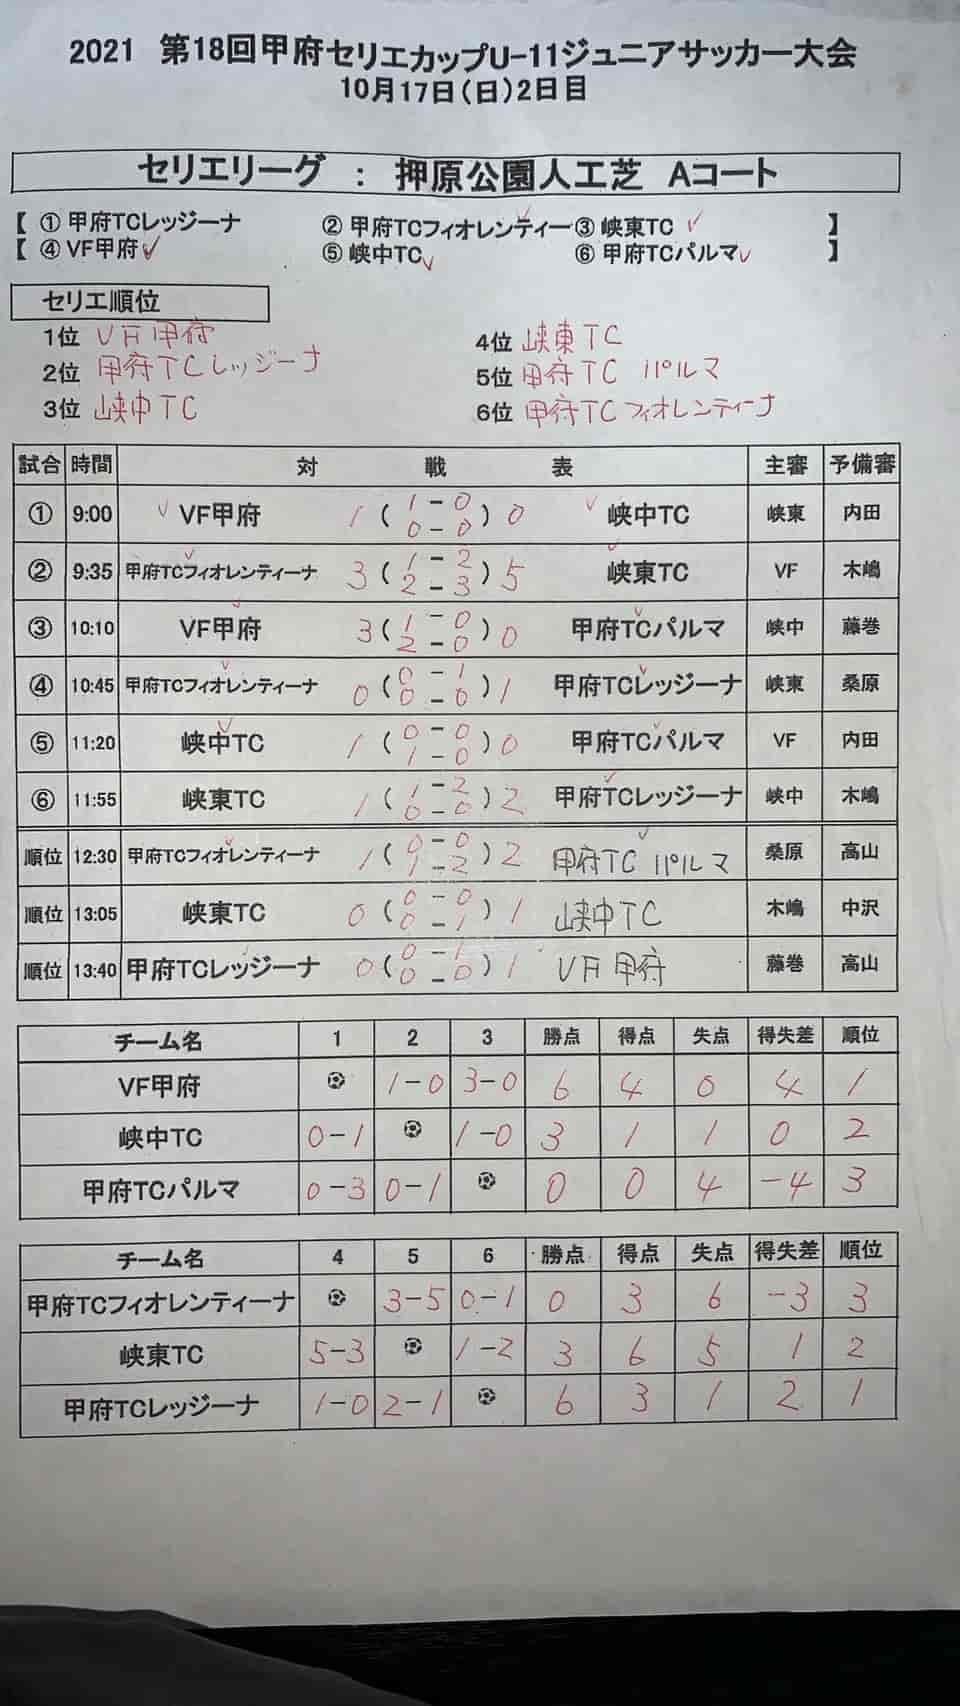 2021 第18回甲府セリエカップU-11ジュニアサッカー大会
10月17日(日)2日目
セリエリーグ : 押原公園人工芝 Aコート
【 ① 甲府TCレッジーナ ② 甲府TCフィオレンティー ③ 峡東TC ✓ 】
【 ④ VF甲府 ✓ ⑤ 峡中TC ✓ ⑥ 甲府TCパルマ ✓ 】
セリエ順位
1位 VF甲府 4位 峡東TC
2位 甲府TCレッジーナ 5位 甲府TC パルマ
3位 峡中TC 6位 甲府TCフィオレンティーナ
試合 時間 対 戦 表 主審 予備審
① 9:00 ✓ VF甲府 1 ( 1-0 0-0 ) 0 ✓ 峡中TC 峡東 内田
② 9:35 甲府TCフィオレンティーナ 3 ( 1-2 2-3 ) 5 峡東TC VF 木嶋
③ 10:10 VF甲府 3 ( 1-0 2-0 ) 0 甲府TCパルマ 峡中 藤巻
④ 10:45 甲府TCフィオレンティーナ 0 ( 0-1 0-0 ) 1 甲府TCレッジーナ 峡東 桑原
⑤ 11:20 峡中TC 1 ( 0-0 1-0 ) 0 甲府TCパルマ VF 内田
⑥ 11:55 峡東TC 1 ( 1-2 0-0 ) 2 甲府TCレッジーナ 峡中 木嶋
順位 12:30 甲府TCフィオレンティーナ 1 ( 0-0 1-2 ) 2 甲府TC パルマ 桑原 高山
順位 13:05 峡東TC 0 ( 0-0 0-1 ) 1 峡中TC 木嶋 中沢
順位 13:40 甲府TCレッジーナ 0 ( 0-1 0-0 ) 1 VF甲府 藤巻 高山
チーム名 1 2 3 勝点 得点 失点 得失差 順位
VF甲府 ⚽ 1-0 3-0 6 4 0 4 1
峡中TC 0-1 ⚽ 1-0 3 1 1 0 2
甲府TCパルマ 0-3 0-1 ⚽ 0 0 4 -4 3
チーム名 4 5 6 勝点 得点 失点 得失差 順位
甲府TCフィオレンティーナ ⚽ 3-5 0-1 0 3 6 -3 3
峡東TC 5-3 ⚽ 1-2 3 6 5 1 2
甲府TCレッジーナ 1-0 2-1 ⚽ 6 3 1 2 1